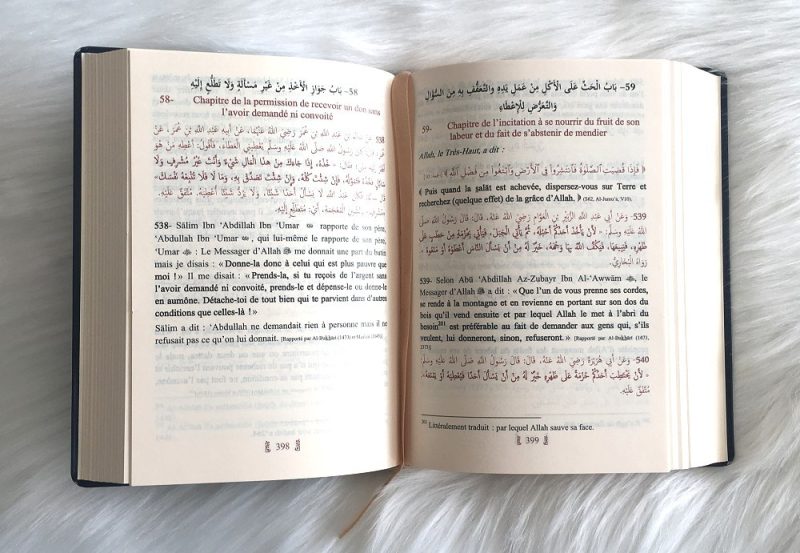 58- بَابُ جَوَازِ الْأَخْذِ مِنْ غَيْرِ مَسْأَلَةٍ وَلَا تَطَلُّعٍ إِلَيْهِ
58- Chapitre de la permission de recevoir un don sans
l'avoir demandé ni convoité
538- Sâlim Ibn 'Abdillah Ibn 'Umar rapporte de son père,
'Abdullah Ibn 'Umar , qui lui-même le rapporte de
'Umar : Le Messager d'Allah me donnait une part du butin
mais je disais : « Donne-la donc à celui qui est plus pauvre que
moi ! » Il me disait : « Prends-la, si tu reçois de l'argent sans
l'avoir demandé ni convoité, prends-le et dépense-le ou donne-le
en aumône. Détache-toi de tout bien qui te parvient dans d'autres
conditions que celles-là ! »
Sâlim a dit : 'Abdullah ne demandait rien à personne mais il ne
refusait pas ce qu'on lui donnait. [Rapporté par Al-Bukhârî (1473)
398
59- بَابُ الْحَثِّ عَلَى الْأَكْلِ مِنْ عَمَلِ يَدِهِ وَالتَّعَفُّفِ بِهِ مِنَ السُّؤَالِ
وَالتَّعَرُّضِ لِلْإِعْطَاءِ
59- Chapitre de l'incitation à se nourrir du fruit de son
labeur et du fait de s'abstenir de mendier
Allah, le Très-Haut, a dit :
﴿ فَإِذَا قُضِيَتِ الصَّلَوٰةُ فَانتَشِرُوا فِي الْأَرْضِ وَابْتَغُوا مِن فَضْلِ اللَّهِ ﴾
﴾ Puis quand la salât est achevée, dispersez-vous sur Terre et
recherchez (quelque effet) de la grâce d'Allah, ﴿ (S62, Al-Jumu'a, V10).
539- وَعَنْ أَبِي عَبْدِ اللَّهِ الزُّبَيْرِ بْنِ الْعَوَّامِ رَضِيَ اللَّهُ عَنْهُ، قَالَ: قَالَ رَسُولُ اللَّهِ صَلَّى
اللَّهُ عَلَيْهِ وَسَلَّمَ: « لَأَنْ يَأْخُذَ أَحَدُكُمْ أَحْبُلَهُ، ثُمَّ يَأْتِيَ الْجَبَلَ، فَيَأْتِيَ بِحُزْمَةٍ مِنْ حَطَبٍ عَلَى
ظَهْرِهِ، فَيَبِيعَهَا، فَيَكُفَّ اللَّهُ بِهَا وَجْهَهُ، خَيْرٌ لَهُ مِنْ أَنْ يَسْأَلَ النَّاسَ أَعْطَوْهُ أَوْ مَنَعُوهُ »
رَوَاهُ الْبُخَارِيُّ.
539- Selon Abû 'Abdillah Az-Zubayr Ibn Al-'Awwâm , le
Messager d'Allah a dit : « Que l'un de vous prenne ses cordes,
se rende à la montagne et en revienne en portant sur son dos du
bois qu'il vend ensuite et par lequel Allah le met à l'abri du
besoin²⁰¹ est préférable au fait de demander aux gens qui, s'ils
veulent, lui donneront, sinon, refuseront. » [Rapporté par Al-Bukhârî (1471)
540- وَعَنْ أَبِي هُرَيْرَةَ رَضِيَ اللَّهُ عَنْهُ، قَالَ: قَالَ رَسُولُ اللَّهِ صَلَّى اللَّهُ عَلَيْهِ وَسَلَّمَ:
« لَأَنْ يَحْتَطِبَ أَحَدُكُمْ حُزْمَةً عَلَى ظَهْرِهِ، خَيْرٌ لَهُ مِنْ أَنْ يَسْأَلَ أَحَدًا، فَيُعْطِيَهُ أَوْ يَمْنَعَهُ »
مُتَّفَقٌ عَلَيْهِ.
²⁰¹ Littéralement traduit : par lequel Allah sauve sa face.
399